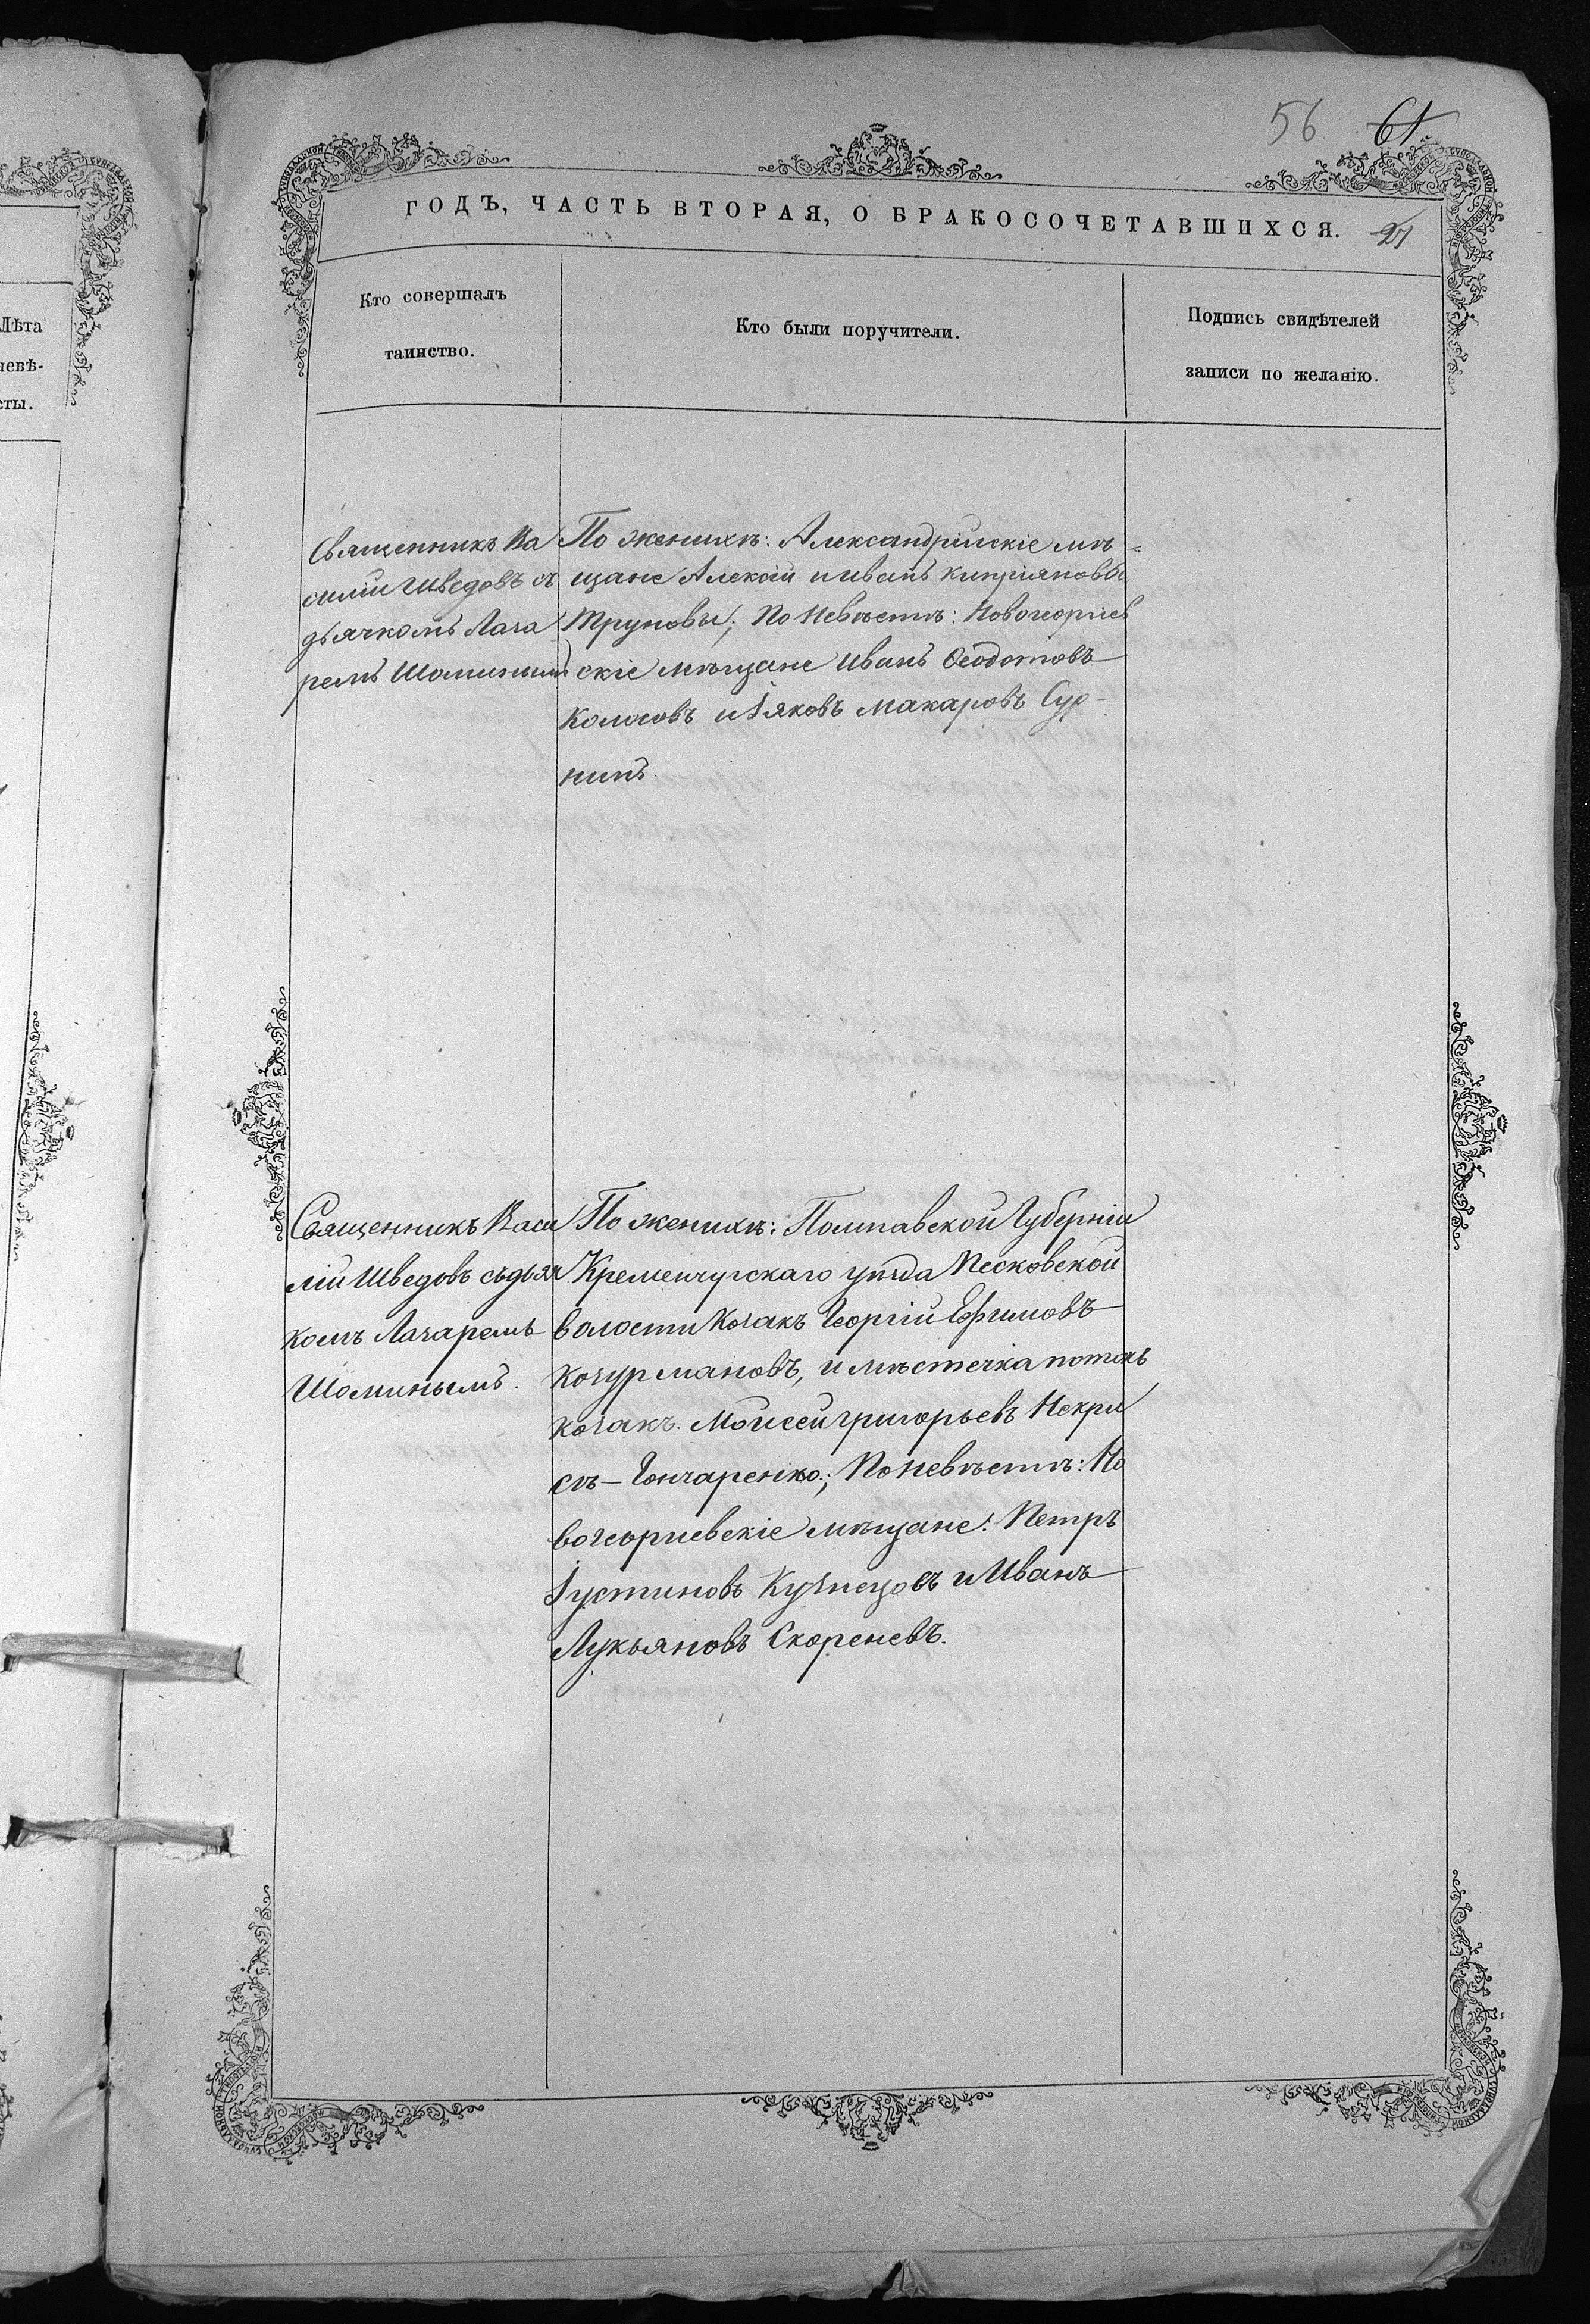 56 61
ГОДЪ, ЧАСТЬ ВТОРАЯ, О БРАКОСОЧЕТАВШИХСЯ. 21
Кто совершалъ
таинство.
Кто были поручители.
Подпись свидѣтелей
записи по желанію.
Лѣта
невѣ-
сты.
Священникъ Ва
силій Шведовъ съ
дьячкомъ Лаза
ремъ Шоминымъ
По женихѣ: Александрійскіе мѣ-
щане Алексѣй и Иванъ Кипріяновы
Труновы; По Невѣстѣ: Новогеоргіев
скіе мѣщане Иванъ Ѳеодотовъ
Колосовъ и Іяковъ Макаровъ Сур-
нинъ.
Священникъ Васи
лій Шведовъ съ дьяч
комъ Лазаремъ
Шоминымъ.
По женихѣ: Полтавской Губерніи
Кременчугскаго уѣзда Песковской
волости Козакъ Георгій Ефимовъ
Кочурмановъ, и мѣстечка потокъ
козакъ Моисей Григорьевъ Некри
съ-Гончаренко; По невѣстѣ: Но
вогеоргиевскіе мѣщане: Петръ
Іустиновъ Кузнецовъ и Иванъ
Лукьяновъ Скореневъ.